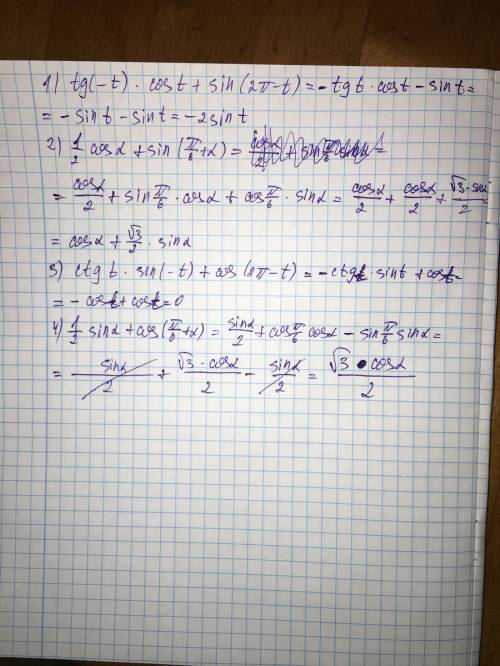 1) tg(-t) · cost + sin(2π-t) = -tgt · cost - sint =
= -sint - sint = -2sint
2) 1/2 cosα + sin(π/6+α) =
= cosα/2 + sin π/6 · cosα + cos π/6 · sinα = cosα/2 + cosα/2 + √3·sinα/2
= cosα + √3/2 · sinα
3) ctgt · sin(-t) + cos(2π-t) = -ctgt · sint + cost =
= -cost + cost = 0
4) 1/2 sinα + cos(π/6+α) = sinα/2 + cos π/6 cosα - sin π/6 sinα =
= sinα/2 + √3·cosα/2 - sinα/2 = √3·cosα/2